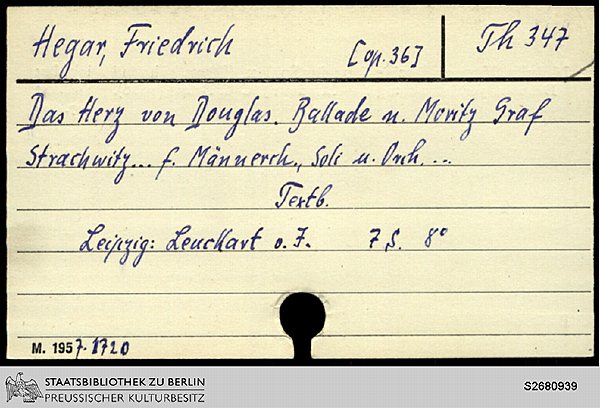 Hegar, Friedrich [op. 36] Th 347
Das Herz von Douglas. Ballade n. Moritz Graf
Strachwitz... f. Männerch., Soli u. Orch. ...
Textb.
Leipzig: Leuckart o. J. 7 S. 8°
M. 1957. 1720
STAATSBIBLIOTHEK ZU BERLIN
PREUSSISCHER KULTURBESITZ
S2680939